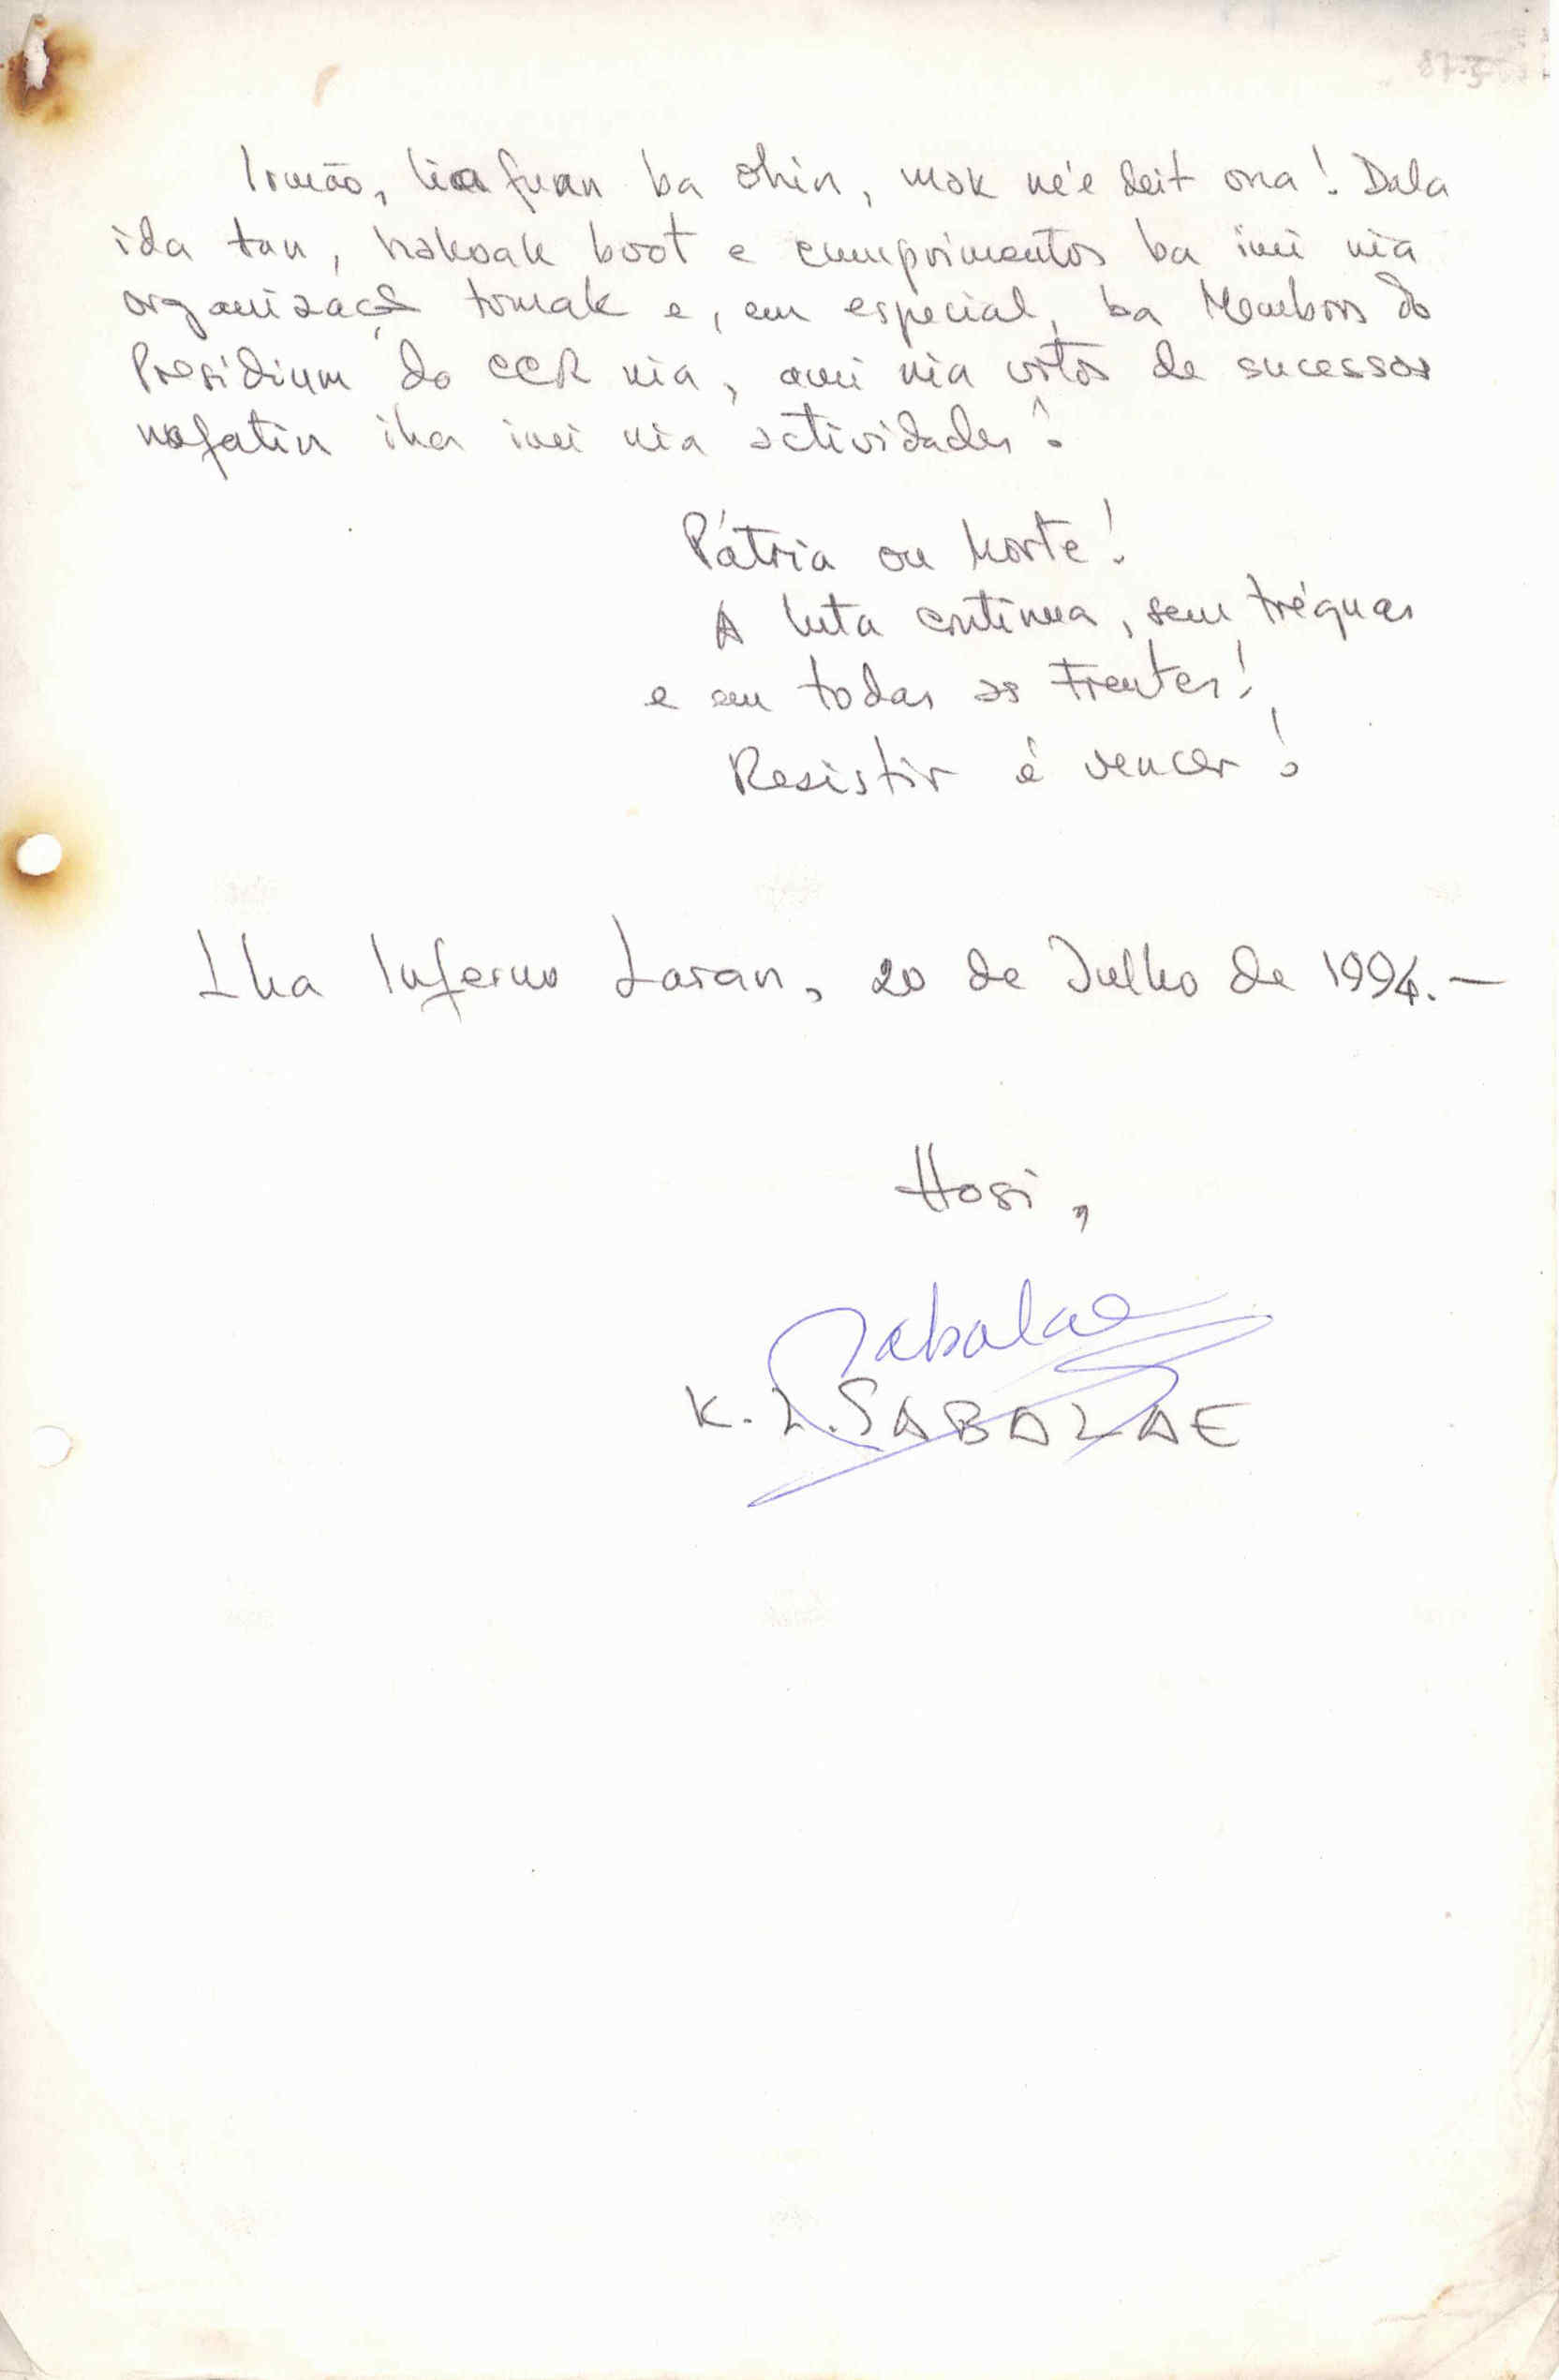 Irmão, liafuan ba ohin, mak ne'e deit ona! Dala
ida tan, hakoak boot e cumprimentos ba imi nia
organização tomak e, em especial, ba Membros do
Presidium do CCR nia, ami nia votos de sucessos
nafatin iha imi nia actividades!
Pátria ou Morte!
A luta continua, sem tréguas
e em todas as Frentes!
Resistir é vencer!
Iha Inferno Laran, 20 de Julho de 1994.—
Hosi,
Sabalae
K. L. SABALAE